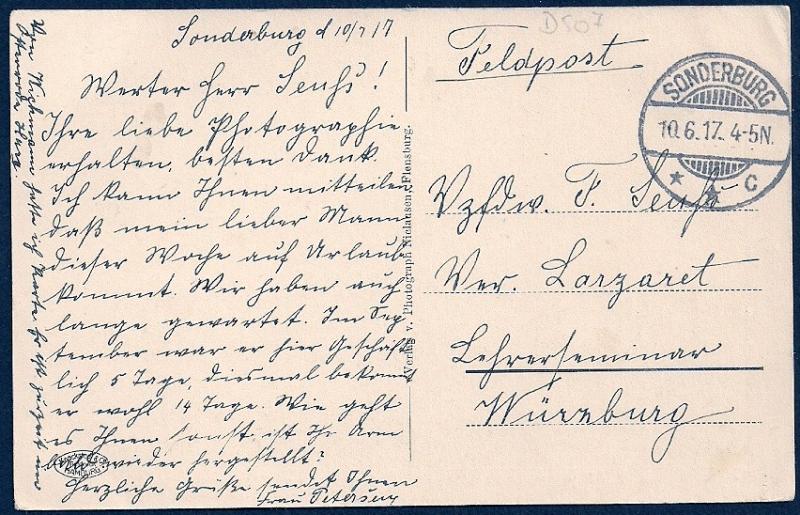 Sonderburg d 10/7 17
Werter Herr Seuß!
Ihre liebe Photographie
erhalten, besten Dank.
Ich kann Ihnen mitteilen
daß mein lieber Mann
dieser Woche auf Urlaub
kommt. Wir haben auch
lange gewartet. Im Sep
tember war er hier Geschäft
lich 5 Tage, diesmal bekommt
er wohl 14 Tage. Wie geht
es Ihnen sonst, ist Ihr Arm
bald wieder hergestellt?
Herzliche Grüße sendet Ihnen
Frau Petersen
Von Wichmann hatte ich Karte Er ist zurzeit in
Verlag v. Photograph Niclausen, Flensburg.
HAMBURG
D507
Feldpost
SONDERBURG
10.6.17. 4-5N.
* * C
Vzfdw. F. Seuß
Ver. Lazaret
Lehrerseminar
Würzburg